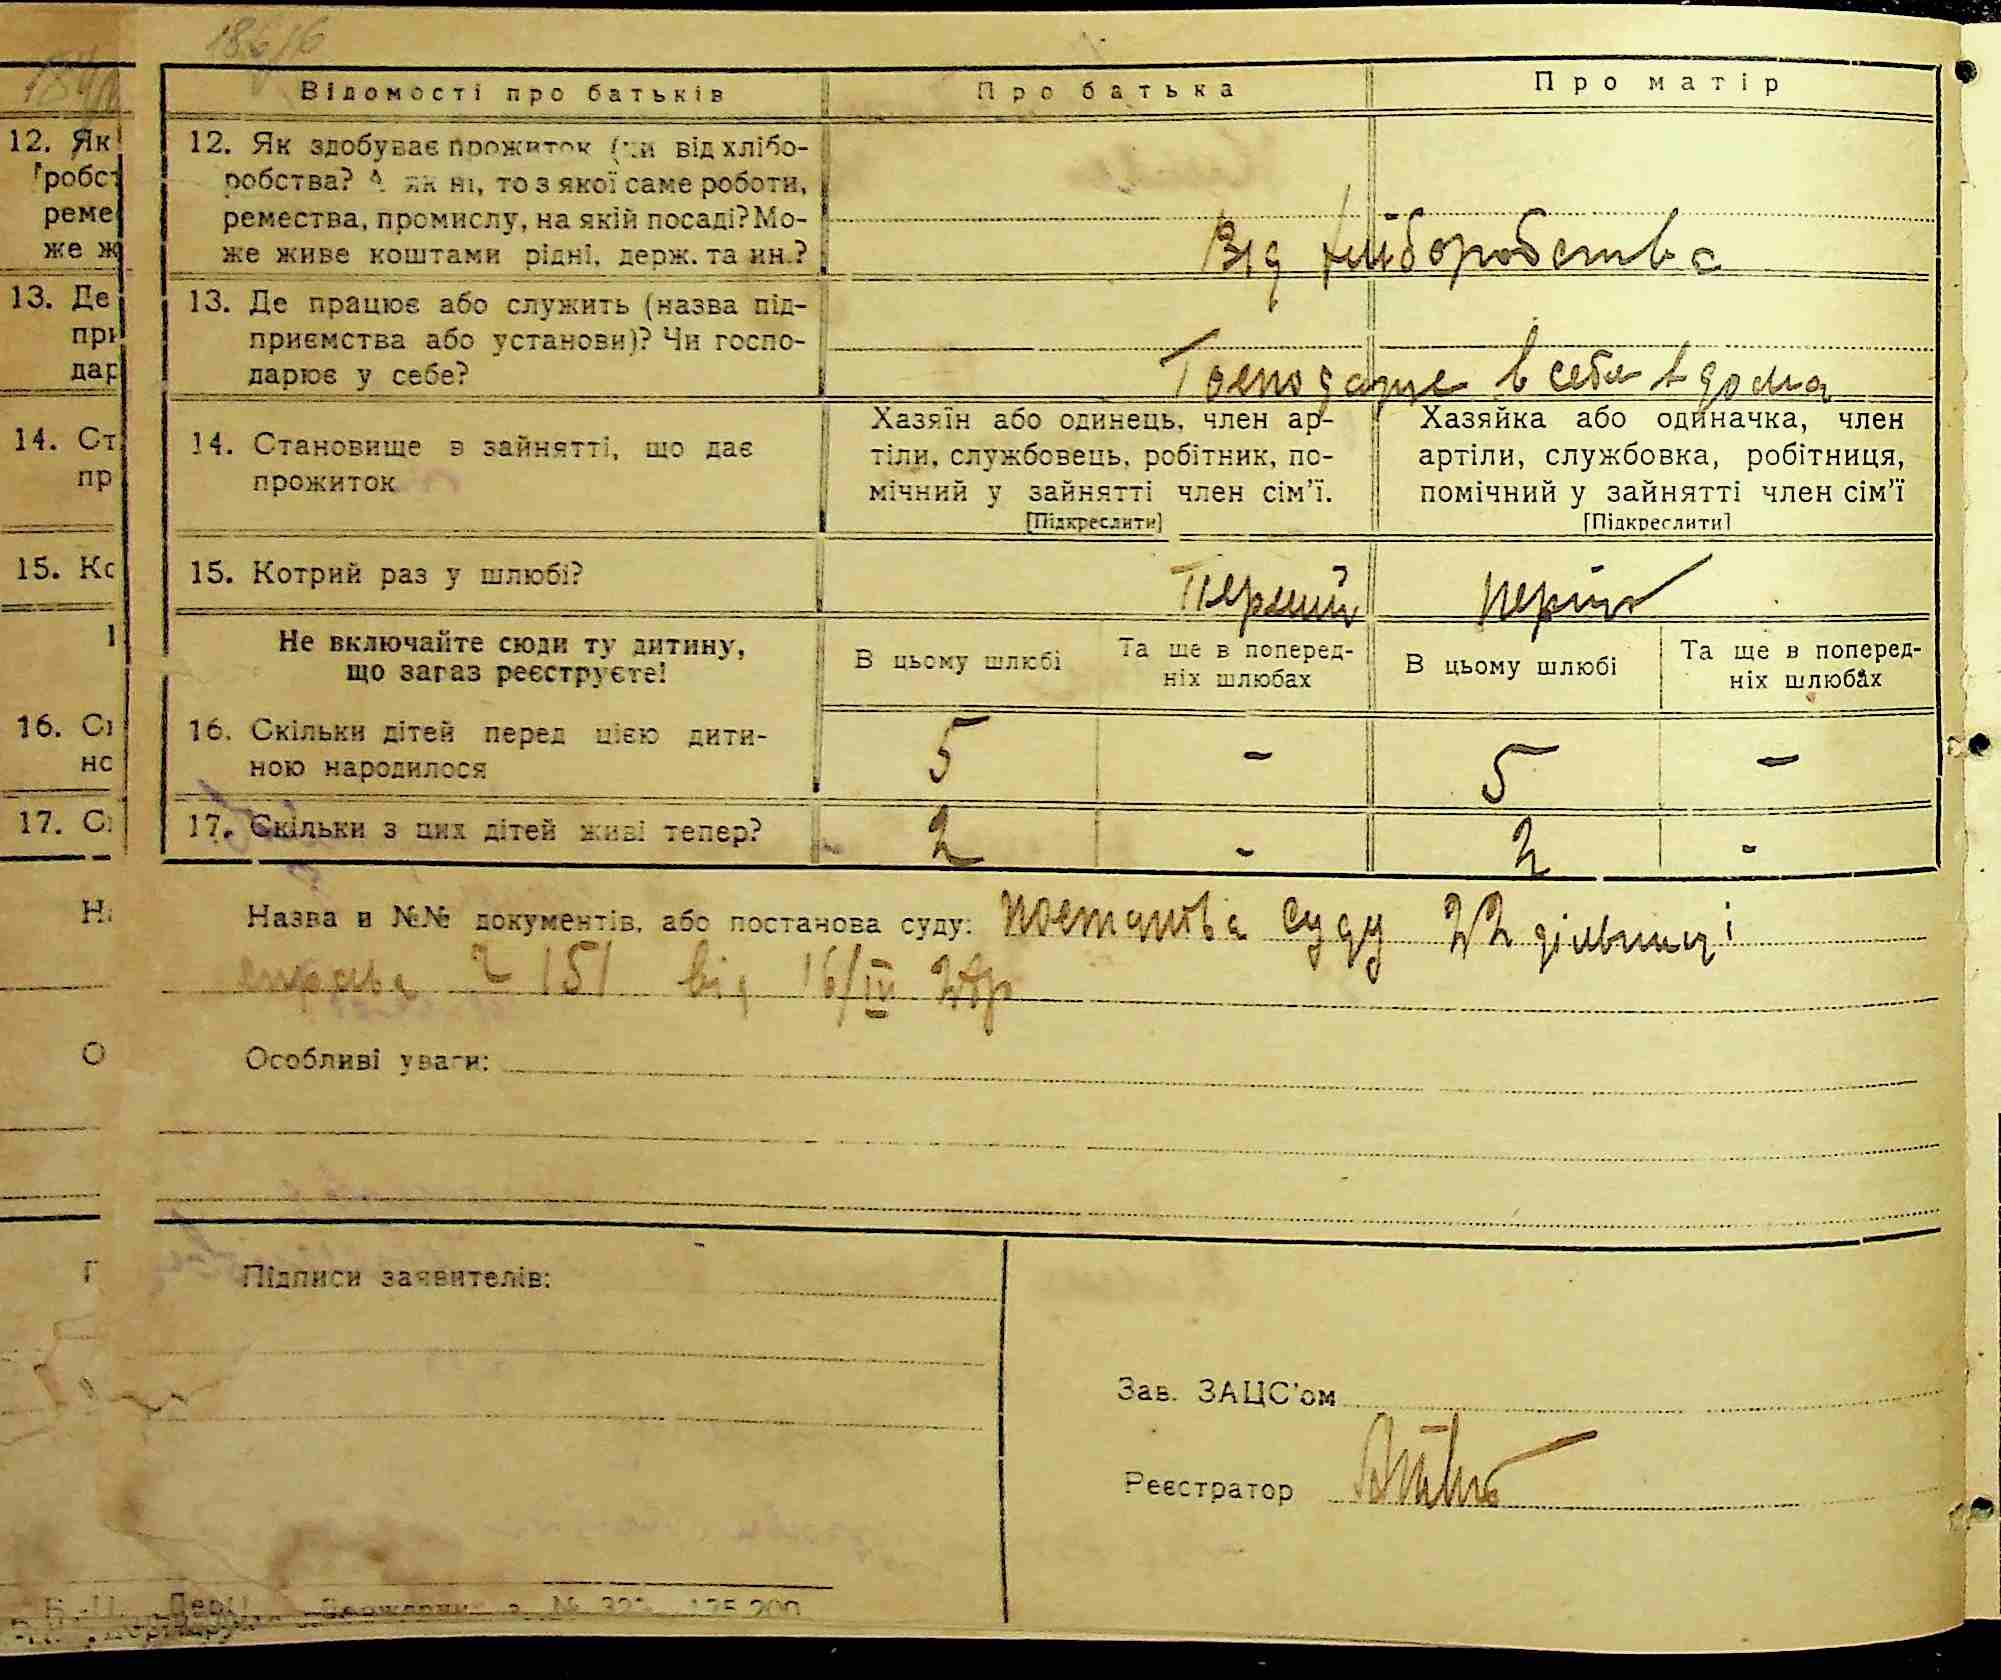 186/6
Відомості про батьків
Про батька
Про матір
12. Як здобуває прожиток (чи від хлібо-
робства? А як ні, то з якої саме роботи,
ремества, промислу, на якій посаді? Мо-
же живе коштами рідні, держ. та ин.?
Від хліборобства
13. Де працює або служить (назва під-
приємства або установи)? Чи госпо-
дарює у себе?
Господарює в себе вдома
14. Становище в зайнятті, що дає
прожиток
Хазяїн або одинець, член ар-
тіли, службовець, робітник, по-
мічний у зайнятті член сім'ї.
[Підкреслити]
Хазяйка або одиначка, член
артіли, службовка, робітниця,
помічний у зайнятті член сім'ї
[Підкреслити]
15. Котрий раз у шлюбі?
Первий
Не включайте сюди ту дитину,
що зараз реєструєте!
В цьому шлюбі
Та ще в поперед-
ніх шлюбах
В цьому шлюбі
Та ще в поперед-
ніх шлюбах
16. Скільки дітей перед цією дити-
ною народилося
5 - 5 -
17. Скільки з цих дітей живі тепер?
2 - 2 -
Назва и №№ документів, або постанова суду: постанова суду 22 дільниці
справа ч 151 від 16/IV
Особливі уваги:
Підписи заявителів:
Зав. ЗАЦС'ом
Реєстратор
12. Як
робст
реме
же ж
13. Де
при
дар
14. Ст
пр
15. Ко
16. Ск
но
17. Ск